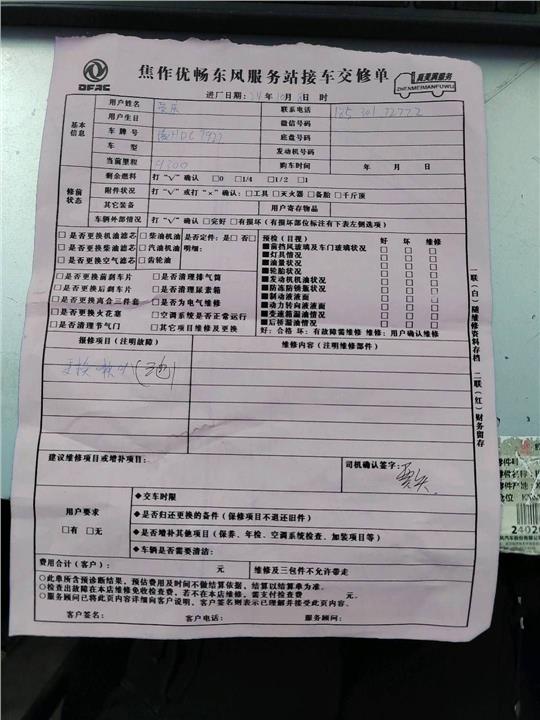 DFAC
焦作优畅东风服务站接车交修单
真美满服务
ZHENMEIMANFUWU
进厂日期：24年10月 日 时
基本信息
用户姓名 联系电话
用户生日 微信号码
车牌号 底盘号码
车型 发动机号码
当前里程 9300 购车时间 年 月 日
修前状态
剩余燃料 打“√”确认 □0 □1/4 □1/2 □1
附件状况 打“√”或打“×”确认：□工具 □灭火器 □备胎 □千斤顶
其它装备 用户寄存物品
车辆外部情况 打“√”确认 □完好 □有损坏（有损坏部位标注有下表左侧选项）
□是否更换机油滤芯 □柴油机油 是否定件：是□否□
□是否更换柴油滤芯 □汽油机油 明细：
□是否更换空气滤芯 □齿轮油
□是否更换前刹车片 □是否清理排气筒
□是否更换后刹车片 □是否清理尿素箱
□是否更换离合三件套 □是否为电气维修
□是否更换火花塞 □空调系统是否正常运行
□是否清理节气门 □其它项目维修及更换
预检（目视） 好 坏 维修
■前挡风玻璃及车门玻璃状况 □ □ □
■灯具情况 □ □ □
■油量状况 □ □ □
■轮胎状况 □ □ □
■发动机机油状况 □ □ □
■防冻防锈氩状况 □ □ □
■制动液液面 □ □ □
■动力转向液液面 □ □ □
■变速箱漏油情况 □ □ □
■后桥漏油情况 □ □ □
好：合格 坏：有故障需维修 维修：用户确认维修
报修项目（注明故障） 维修内容（注明维修部件）
更换
建议维修项目或增补项目： 司机确认签字：
用户要求
□有 □无
◆交车时限
◆是否归还更换的备件（保修项目不退还旧件）
◆是否增补其他项目（保养、年检、空调系统检查、加装项目等）
◆车辆是否需要清洁：
费用合计（客户）： 元 维修及三包件不允许带走
○此单所含预诊断结果，预估费用及时间不做结算依据，结算以结算单为准。
○检查出故障在本店维修免收检查费，若不在本店维修，需支付检查费 元。
○服务顾问已将此页内容详细向客户说明，客户签名则表示已理解并接受此页内容。
客户签名： 客户电话： 服务顾问：
一联（白）随维修资料存档 二联（红）财务留存
2402
汽车股份有限公